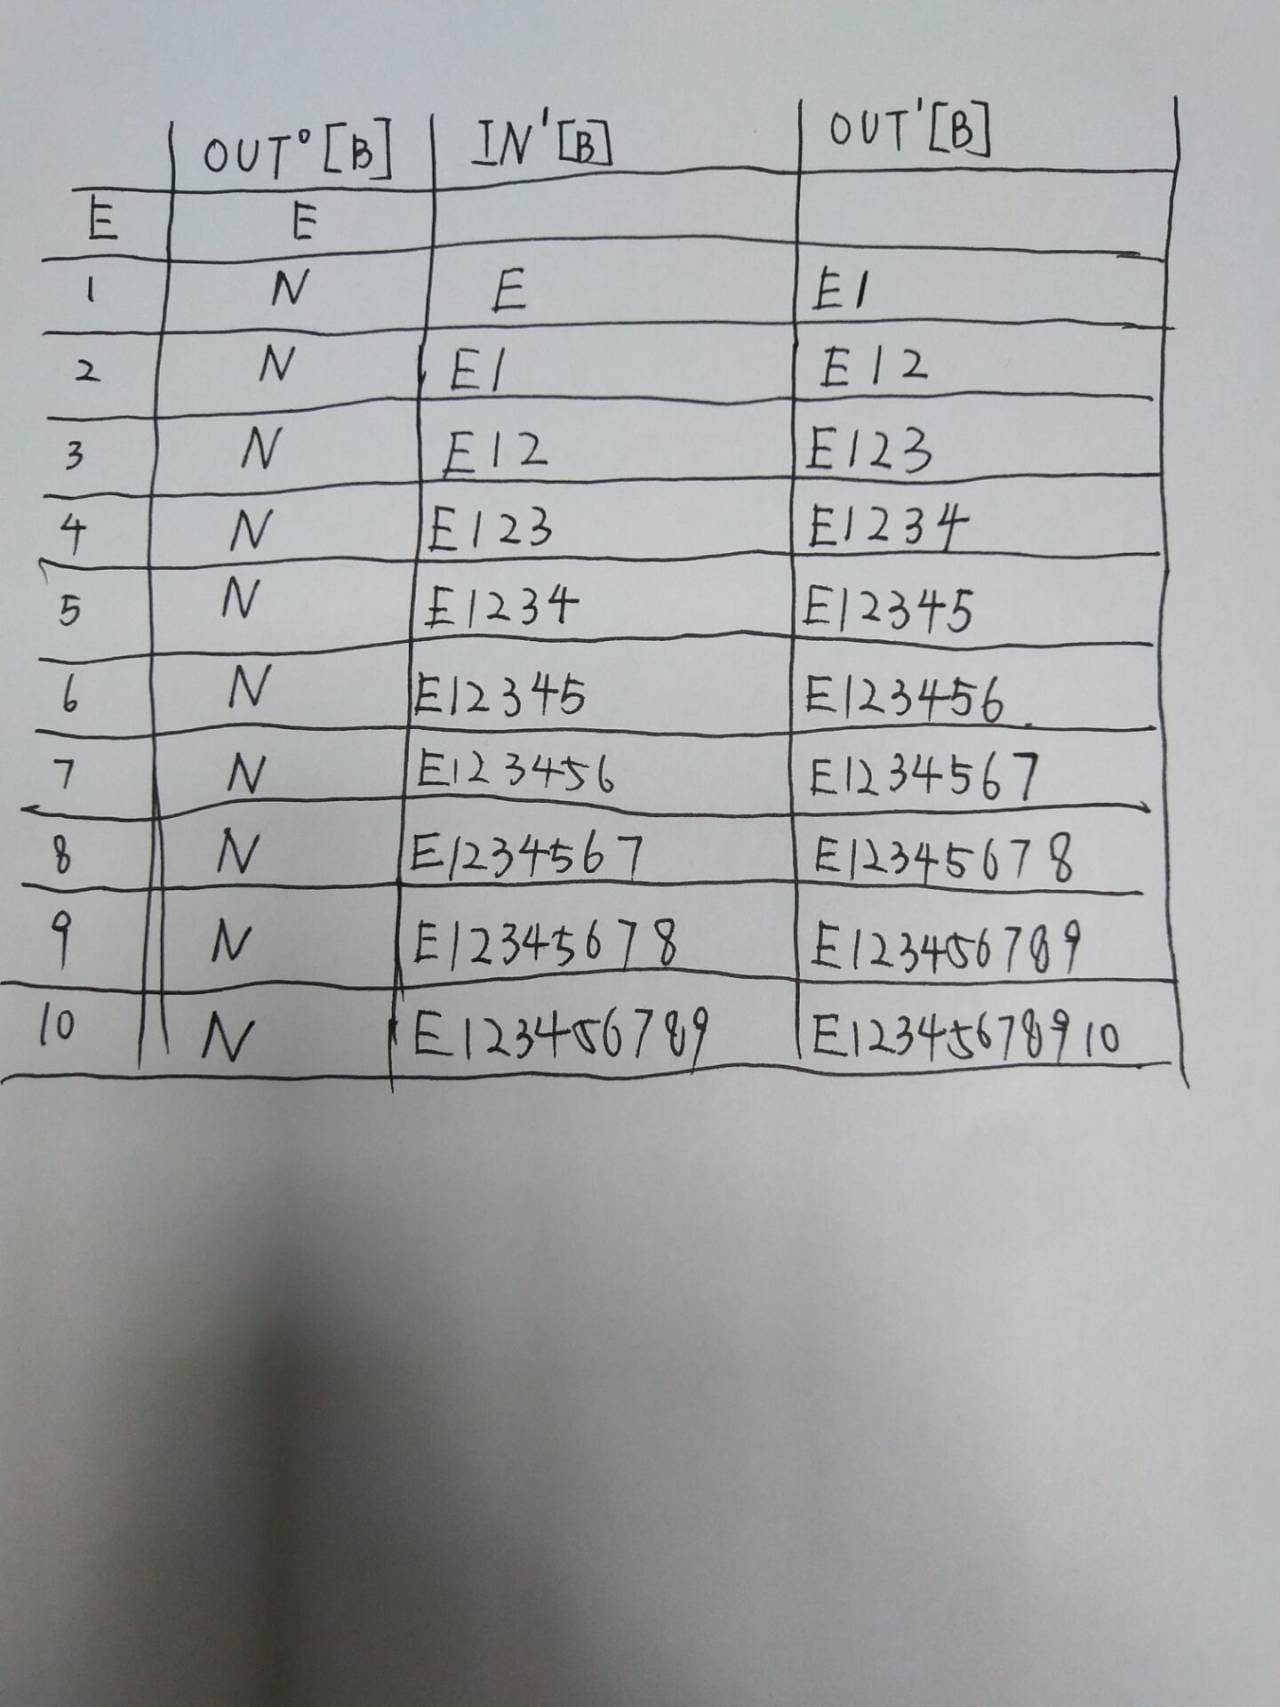 OUT⁰[B] IN'[B] OUT'[B]
E E
1 N E E1
2 N E1 E12
3 N E12 E123
4 N E123 E1234
5 N E1234 E12345
6 N E12345 E123456
7 N E123456 E1234567
8 N E1234567 E12345678
9 N E12345678 E123456789
10 N E123456789 E12345678910